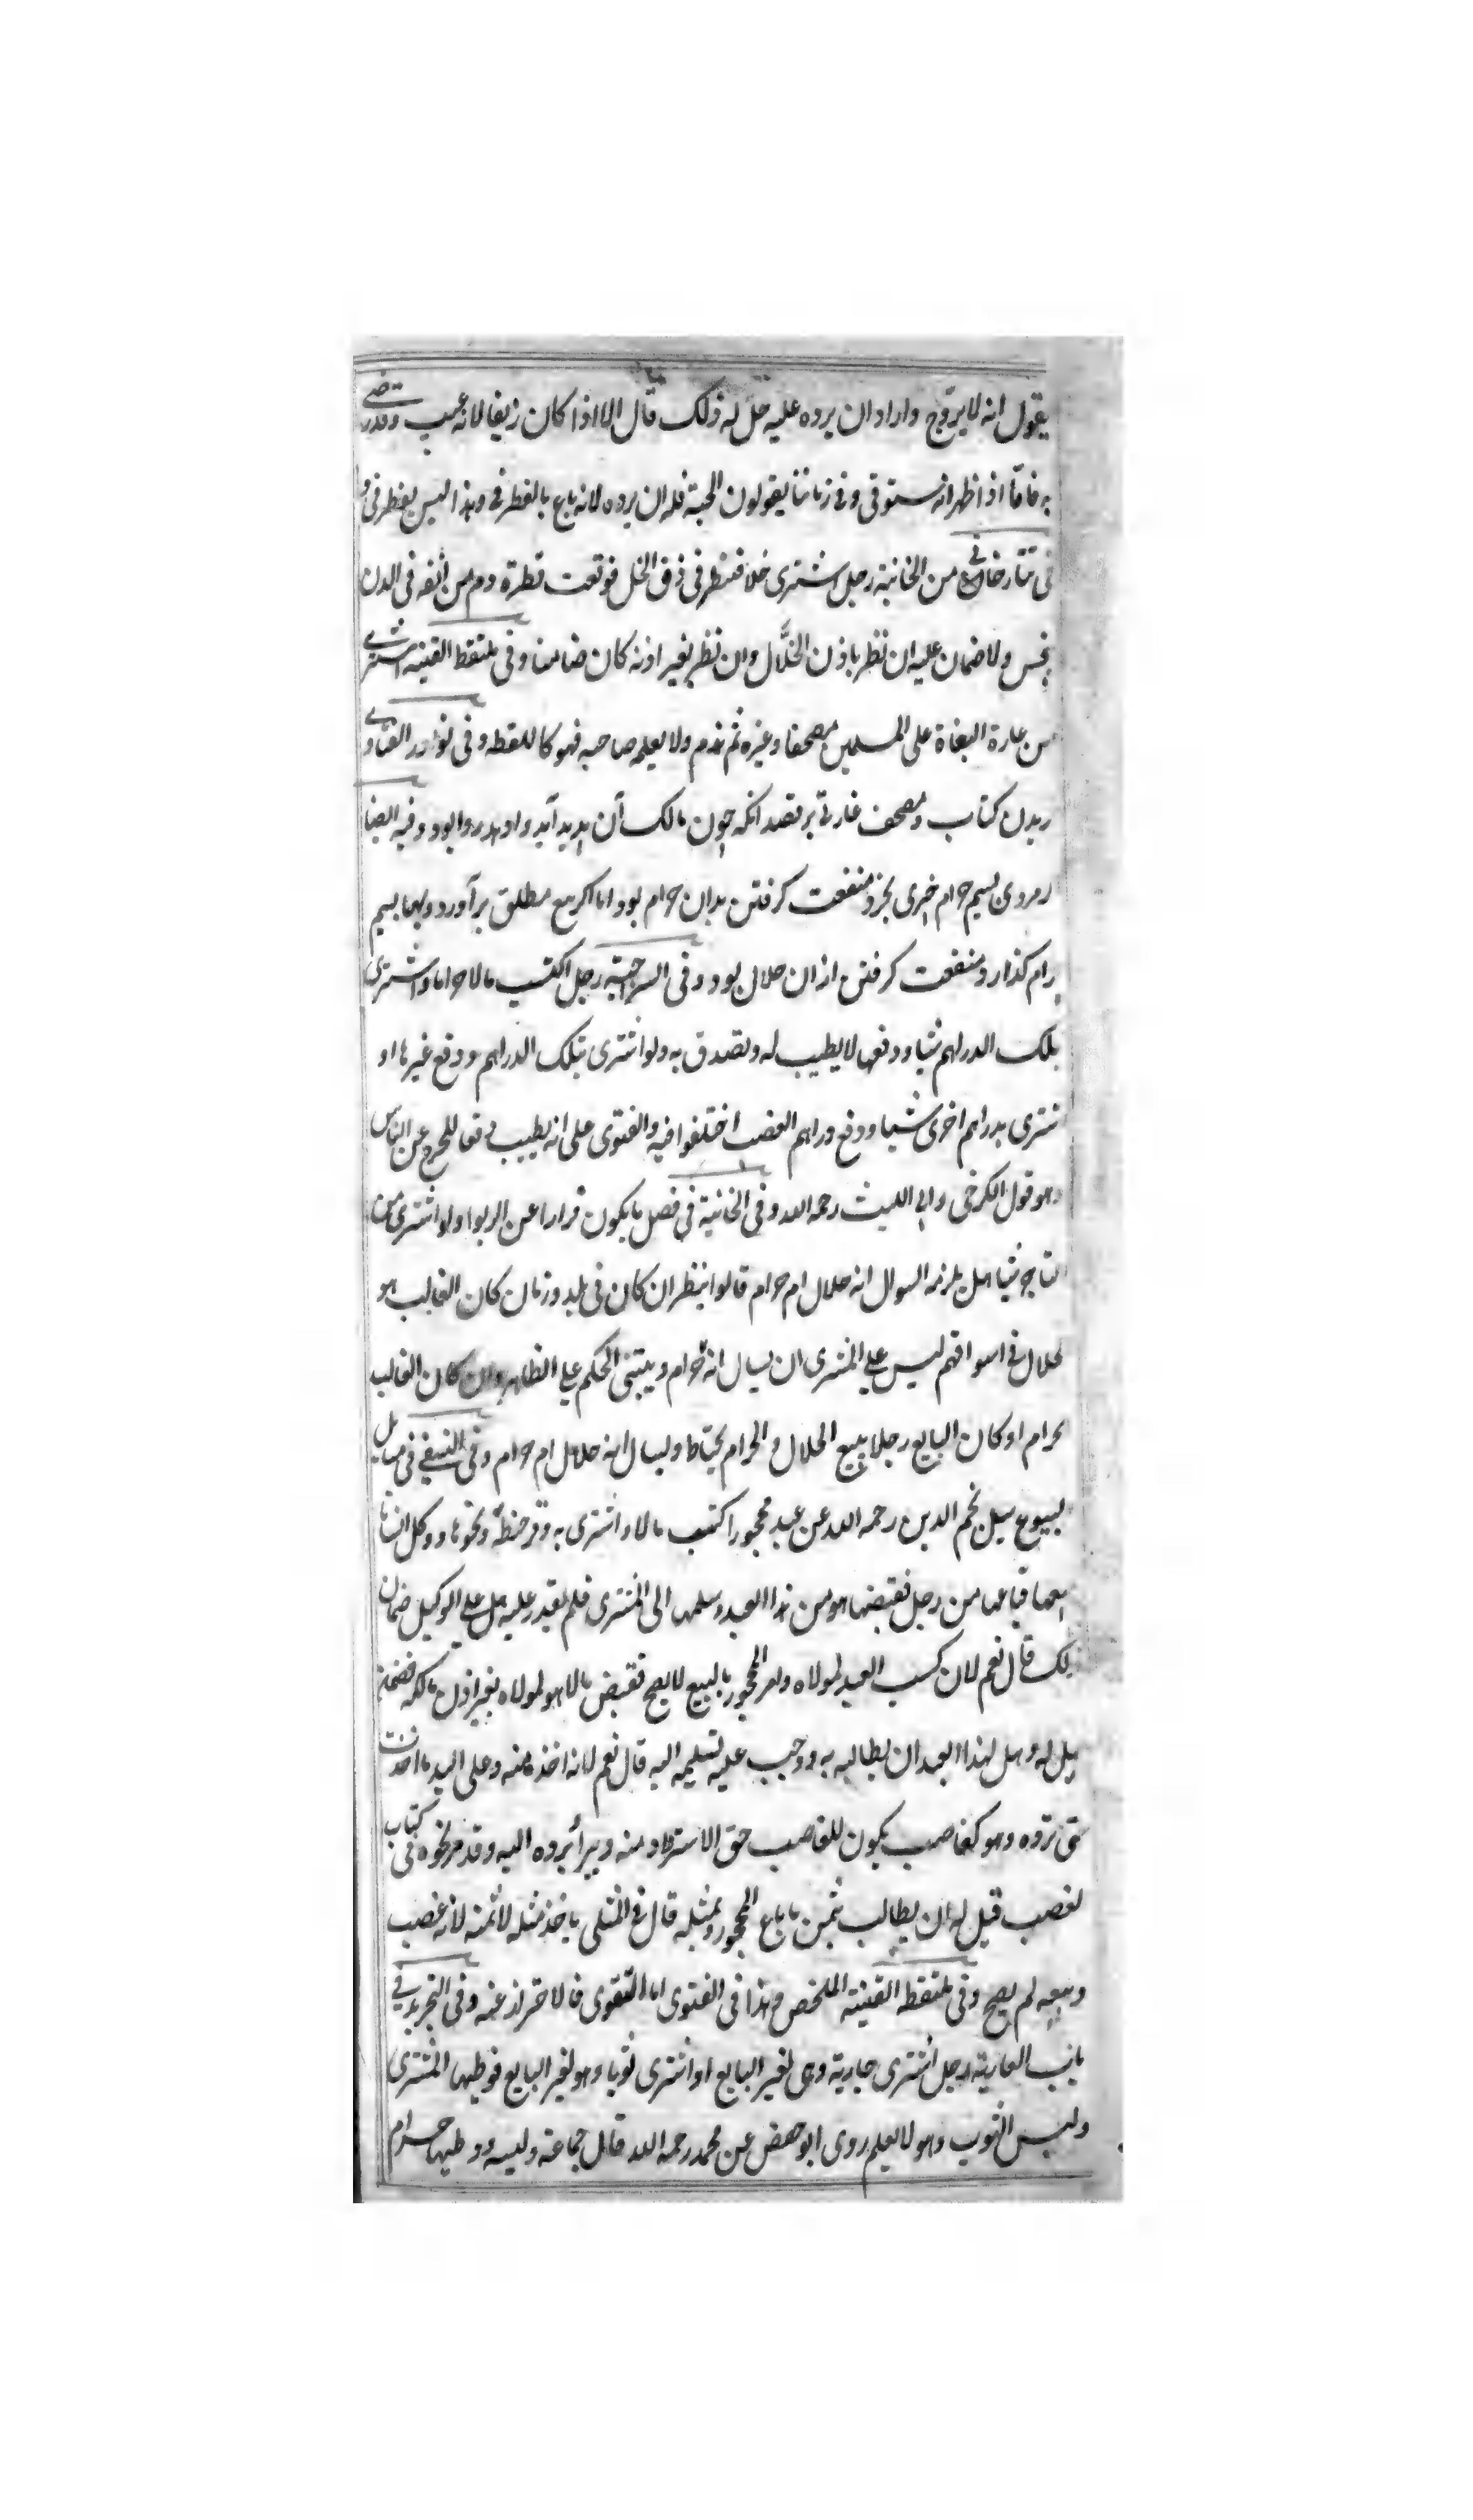 يقول انه لا يروج واراد ان يرده عليه حل له ذلك قال الا اذا كان زيفا لانه عيب وقد رضى
به فاما اذا ظهر انه ستوقى وفى زماننا يقولون الحبة فله ان يرده لانه باع بالغطرفى وهذا ليس بغطرفى
فى تتارخانى من الخانية رجل اشترى خلا فنظر فى زق الخل فوقعت قطرة دم من انفه فى الدن
نجس ولا ضمان عليه ان نظر باذن الخلال وان نظر بغير اذنه كان ضامنا وفى ملتقط القنية اشترى
من غارة البغاة على المسلمين مصحفا وغيره ثم ندم ولا يعلم صاحبه فهو كاللقطه وفى نوادر الفتاوى
ريدن كتاب ومصحف غارتى بر قصد انكه چون مالك آن پديد آيد واو دهد روا بود وفيه ايضا
مردى بسيم حرام چيزى بخرد منفعت كرفتن بدان حرام بود اما اكر بيع مطلق برآورد وبها بسيم
رام كذارد منفعت كرفتن از ان حلال بود وفى السراجية رجل اكتسب مالا حراما واشترى
بتلك الدراهم شيا ودفعها لا يطيب له وتصدق به ولو اشترى بتلك الدراهم ودفع غيرها او
شترى بدراهم اخرى شيا ودفع دراهم الغصب اختلفوا فيه والفتوى على انه يطيب دفعا للحرج عن الناس
وهو قول الكرخى وابى الليث رحمه الله وفى الخانية فى فصل ما يكون فرارا عن الربوا ولو اشترى من
التاجر شيا هل يلزمه السوال انه حلال ام حرام قالوا ينظر ان كان فى بلد وزمان كان الغالب هو
لحلال فى اسواقهم ليس على المشترى ان يسال انه حرام ويبتنى الحكم على الظاهر وان كان الغالب
لحرام او كان البايع رجلا يبيع الحلال والحرام يحتاط ويسال انه حلال ام حرام وفى النسفى فى مسايل
لبيوع سيل نجم الدين رحمه الله عن عبد محجور اكتسب مالا واشترى به وقر حنطة ونحوها ووكل انسانا
ببيعها فباعها من رجل فقبضها هو من هذا العبد وسلمها الى المشترى فلم يقدر عليه هل على الوكيل ضمان
ذلك قال نعم لان كسب العبد لمولاه وامر المحجور بالبيع لا يصح فقبض مالا هو لمولاه بغير اذن مالكه فضمنه
قيل له وهل لهذا العبد ان يطالبه به ووجب عليه تسليمه اليه قال نعم لانه اخذ منه وعلى اليد ما اخذت
حتى ترده وهو كغاصب يكون للغاصب حق الاسترداد منه ويبرأ برده اليه وقد مر نحوه فى كتاب
لغصب قيل له ان يطالب بثمن ما باع المحجور وبمثله قال فى المثلى ياخذ مثله لا ثمنه لانه غصب
وبيعه لم يصح وفى ملتقط القنية الملخص وهذا فى الفتوى اما التقوى فالاحتراز عنه وفى التجريد فى
باب العارية رجل اشترى جارية وهى لغير البايع او اشترى ثوبا وهو لغير البايع فوطيها المشترى
ولبس الثوب وهو لا يعلم روى ابو حفص عن محمد رحمه الله قال جماعه ولبسه ووطيها حرام